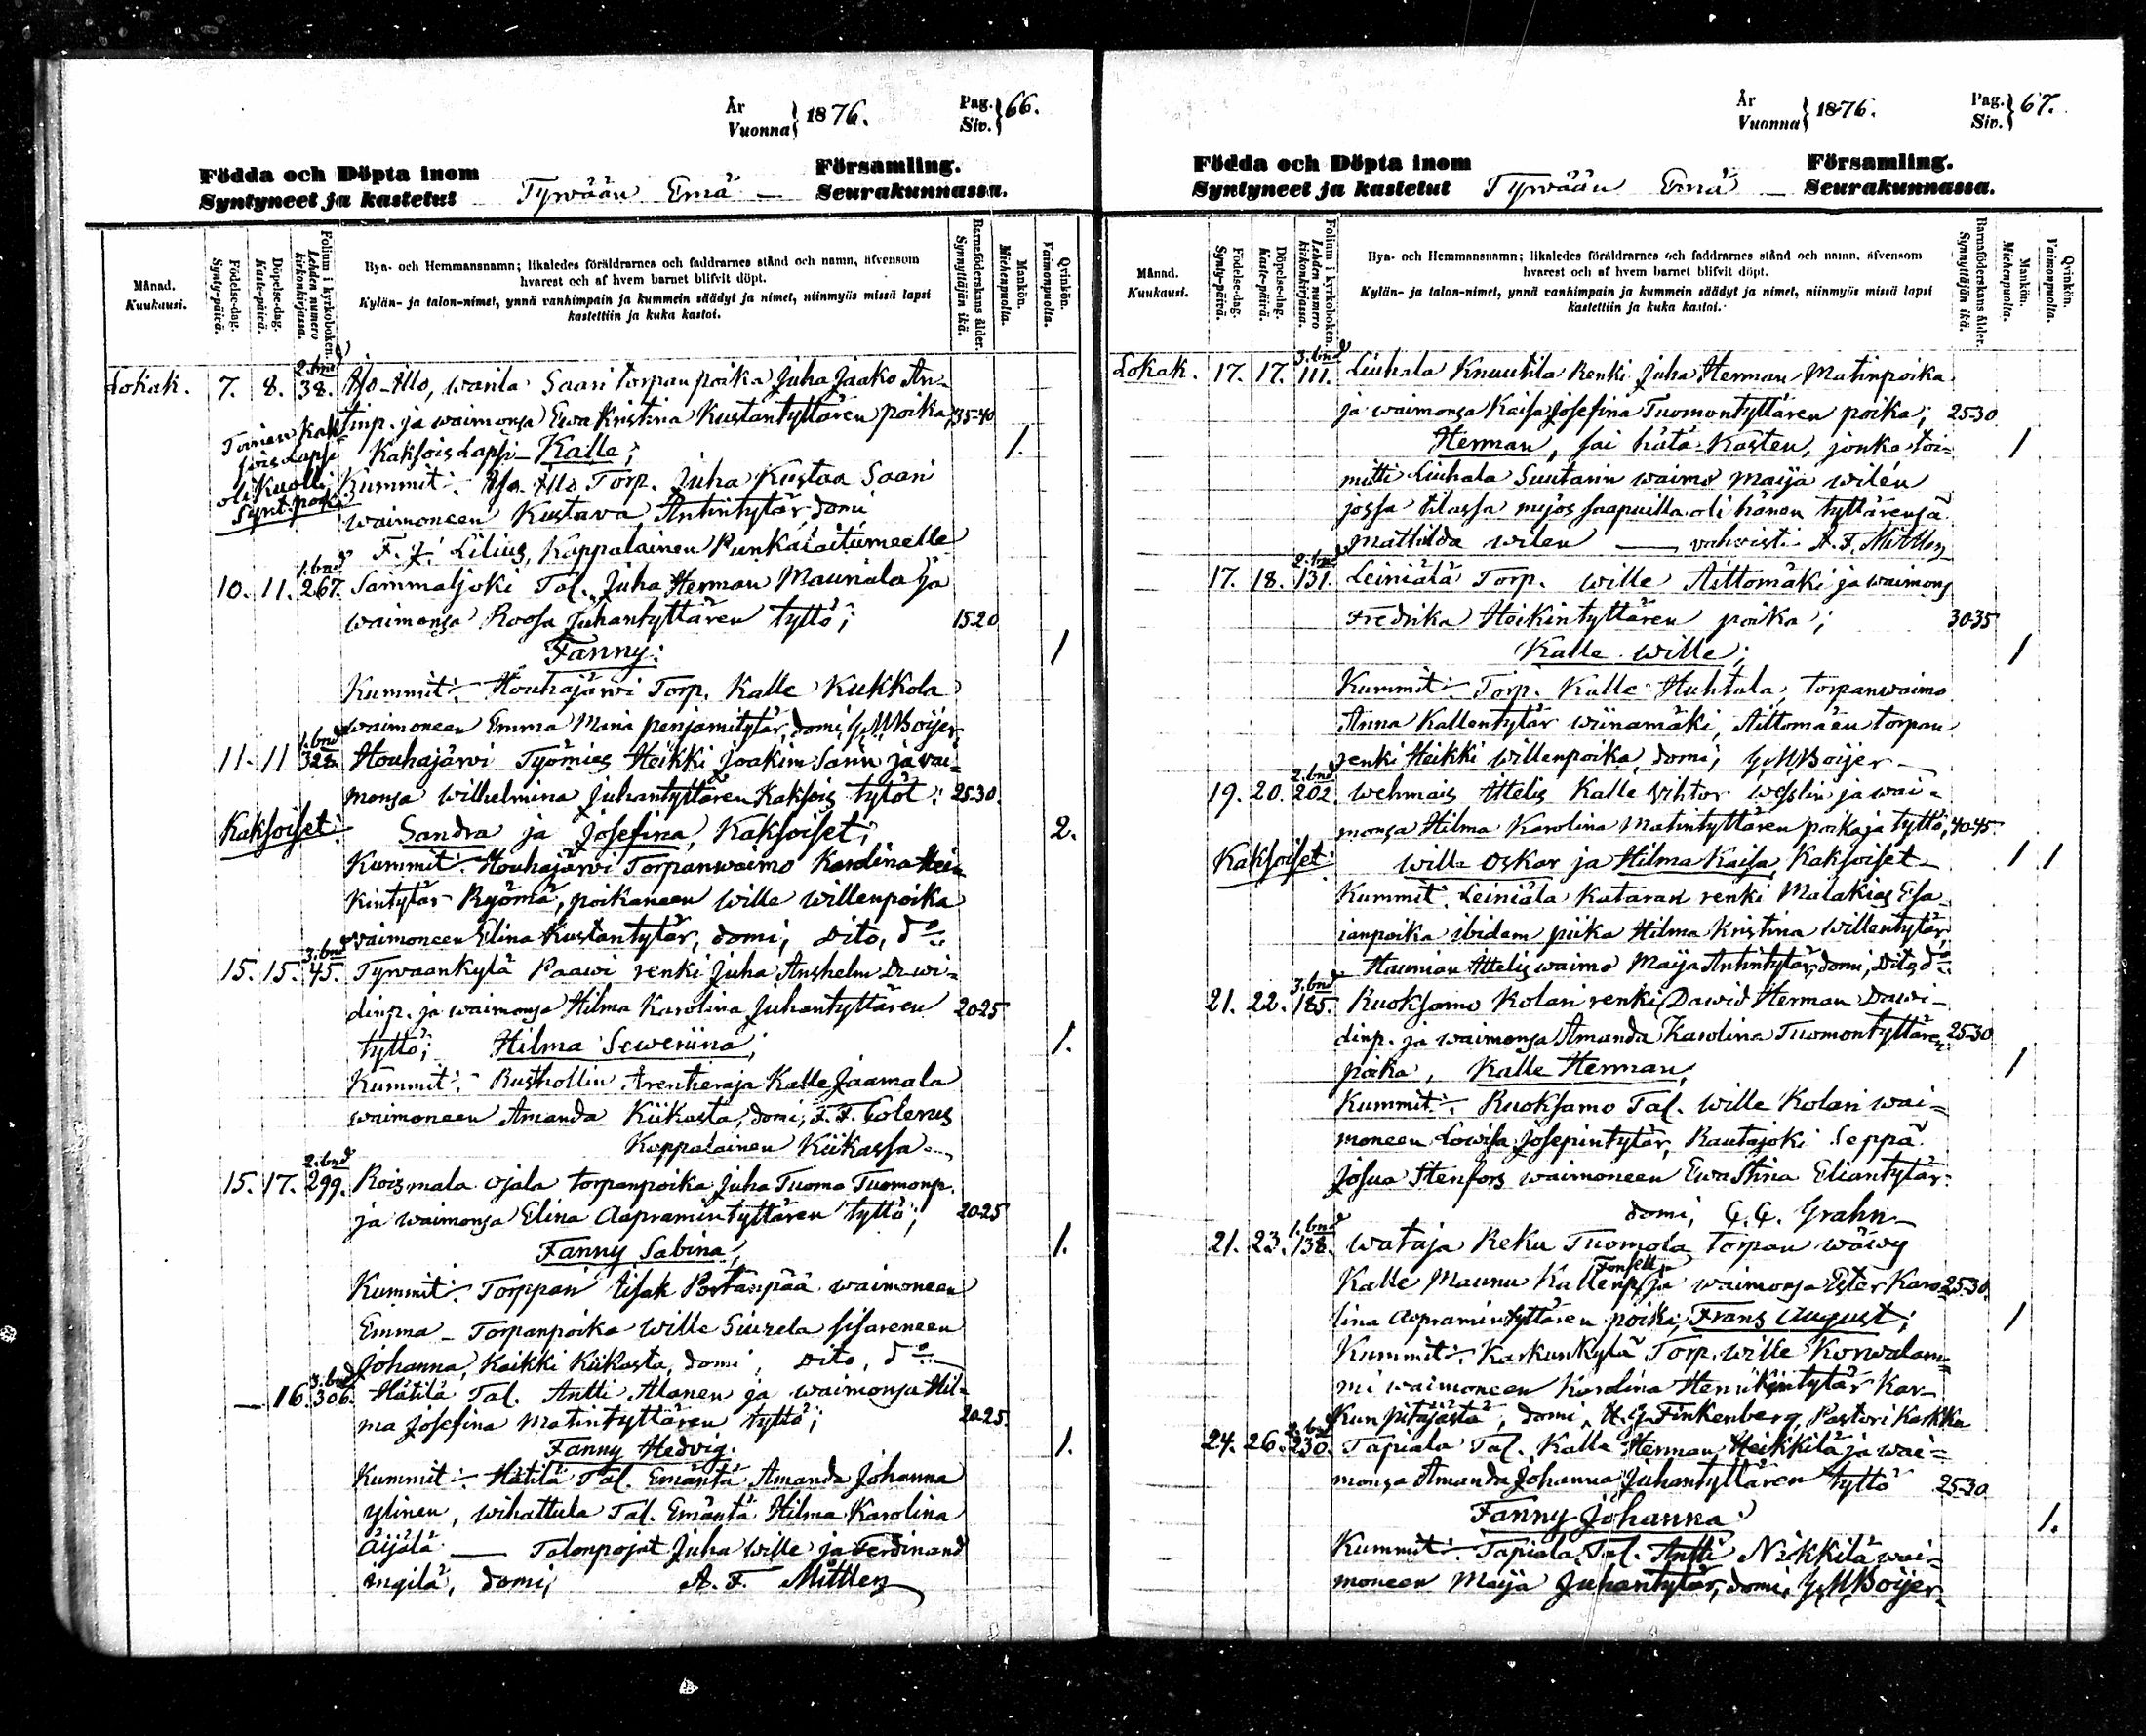 År
Vuonna } 1876.
Pag.
Siv. } 66.
Födda och Döpta inom
Syntyneet ja kastetut
Tyrvään Emä —
Församling.
Seurakunnassa.
Månad.
Kuukausi.
Födelse-dag.
Synty-päivä.
Döpelse-dag.
Kaste-päivä.
Folium i kyrkoboken.
Lehden numero
kirkonkirjassa.
Bya- och Hemmansnamn; likaledes föräldrarnes och faddrarnes stånd och namn, äfvensom
hvarest och af hvem barnet blifvit döpt.
Kylän- ja talon-nimet, ynnä vanhimpain ja kummein säädyt ja nimet, niinmyös missä lapsi
kastettiin ja kuka kastoi.
Barnaföderskans ålder.
Synnyttäjän ikä.
Mankön.
Miehenpuolta.
Qvinkön.
Vaimonpuolta.
2. bnd
Lokak. 7. 8. 38. Illo, wanla Saari torpan poika Juha Jaako An-
tinp. ja waimonsa Ewa Kristina Kustantyttären poika, 35-40
Toinen kak
sois Lapsi
oli Kuolli
Synt. poika
Kaksois Lapsi Kalle; 1.
Kummit: Illo Torp. Juha Kustaa Saari
waimoneen Kustava Antintytär, domi
F. J. Lilius, Kappalainen Punkalaitumeelle
1. bnd
10. 11. 267. Sammaljoki Tal. Juha Herman Mauriala ja
waimonsa Roosa Juhantyttären tyttö; 15-20
Fanny: 1
Kummit: Houhajärwi Torp. Kalle Kukkola
waimoneen Emma Maria penjamitytär, domi, G. M. Boijer
1. bnd
11. 11 322. Houhajärwi Työmies Heikki Joakim Sarin ja wai-
monsa Wilhelmina Juhantyttären Kaksois tytöt: 25-30.
Kaksoiset: Sandra ja Josefina, Kaksoiset; 2.
Kummit: Houhajärwi Torpanwaimo Karolina Hei-
kintytär Ryömä, poikaneen Wille Willenpoika
waimoneen Elina Kustantytär, domi, Dito, do
3. bnd
15. 15. 45. Tyrwäänkylä Paawi renki Juha Anshelm Dawi-
dinp. ja waimonsa Hilma Karolina Juhantyttären 20-25
tyttö; Hilma Seweriina; 1.
Kummit: Rusthollin Arentieraja Kalle Jaamala
waimoneen Amanda Kiikasta, domi, F. F. Tolerus
Kappalainen Kiikassa
2. bnd
15. 17. 299. Roismala Ojala torpanpoika Juha Tuoma Tuomonp.
ja waimonsa Elina Aapramintyttären tyttö; 20-25
Fanny Sabina, 1.
Kummit: Torppari Iisak Portaanpää waimoneen
Emma – Torpanpoika Wille Siurela sisareneen
Johanna, Kaikki Kiikasta, domi, Dito, do
3. bnd
— 16. 306. Hätilä Tal. Antti Alanen ja waimonsa Hil-
ma Josefina Matintyttären tyttö; 20-25.
Fanny Hedvig. 1.
Kummit: Hätilä Tal. Emäntä Amanda Johanna
Ylinen, Wihattula Tal. Emäntä Hilma Karolina
Äijälä — Talonpojat Juha Wille ja Ferdinand
Ingilä, domi, A. F. Mittler
År
Vuonna } 1876.
Pag.
Siv. } 67.
Födda och Döpta inom
Syntyneet ja kastetut
Tyrvään Emä —
Församling.
Seurakunnassa.
Månad.
Kuukausi.
Födelse-dag.
Synty-päivä.
Döpelse-dag.
Kaste-päivä.
Folium i kyrkoboken.
Lehden numero
kirkonkirjassa.
Bya- och Hemmansnamn; likaledes föräldrarnes och faddrarnes stånd och namn, äfvensom
hvarest och af hvem barnet blifvit döpt.
Kylän- ja talon-nimet, ynnä vanhimpain ja kummein säädyt ja nimet, niinmyös missä lapsi
kastettiin ja kuka kastoi.
Barnaföderskans ålder.
Synnyttäjän ikä.
Mankön.
Miehenpuolta.
Qvinkön.
Vaimonpuolta.
3. bnd
Lokak. 17. 17. 111. Liuhala Knuutila Renki Juha Herman Matinpoika
ja waimonsa Kaisa Josefina Tuomontyttären poika; 25-30
Herman, sai hätä-kasten, jonka toi- 1
mitti Liuhala Suutarin waimo Maija Wilén
jossa tilassa myös saapuilla oli hänen tyttärensä
Mathilda Wilen — vahvisti A. F. Mittler
2. bnd
17. 18. 131. Leiniälä Torp. Wille Aittomäki ja waimons
Fredrika Heikintyttären poika; 30-35
Kalle Wille; 1
Kummit: Torp. Kalle Huhtala, torpanwaimo
Anna Kallentytär Wiinamäki, Aittomäen torpan
renki Heikki Willenpoika, domi, G. M. Boijer
2. bnd
19. 20. 202. Wehmais Ittelis Kalle Wihtor Weslin ja wai-
monsa Hilma Karolina Matintyttären poika ja tyttö, 40-45
Kaksoiset: Wille Oskar ja Hilma Kaisa, Kaksoiset 1 1
Kummit: Leiniälä Kataran renki Malakias Esa-
ianpoika ibidem piika Hilma Kristina Willentytär,
Haunian Ittelis waimo Maija Antintytär, domi, Dito, do
3. bnd
21. 22. 185. Ruoksamo Kolari renki Dawid Herman Dawi-
dinp. ja waimonsa Amanda Karolina Tuomontyttären 25-30
poika, Kalle Herman, 1
Kummit: Ruoksamo Tal. Wille Kolari wai-
moneen Lowisa Josepintytär, Rautajoki Seppä
Josua Stenfors waimoneen Ewa Stina Eliantytär
domi, G. G. Grahn
1. bnd
21. 23. 138. Wataja Reku Tuomola torpan wäwy
Kalle Maunu Kallenp. Fonsell ja waimonsa Ester Karo- 25-30.
lina Aapramintyttären poika, Frans August; 1
Kummit: Karkunkylä Torp. Wille Korwalam-
mi waimoneen Karolina Henrikintytär Kar-
kun pitäjästä, domi, H. G. Finkenberg, Pastori Karkku
2. bnd
24. 26. 230. Tapiala Tal. Kalle Herman Heikkilä ja wai-
monsa Amanda Johanna Juhantyttären tyttö 25-30
Fanny Johanna 1.
Kummit: Tapiala Tal. Antti Nikkilä wai-
moneen Maija Juhantytär, domi, G. M. Boijer